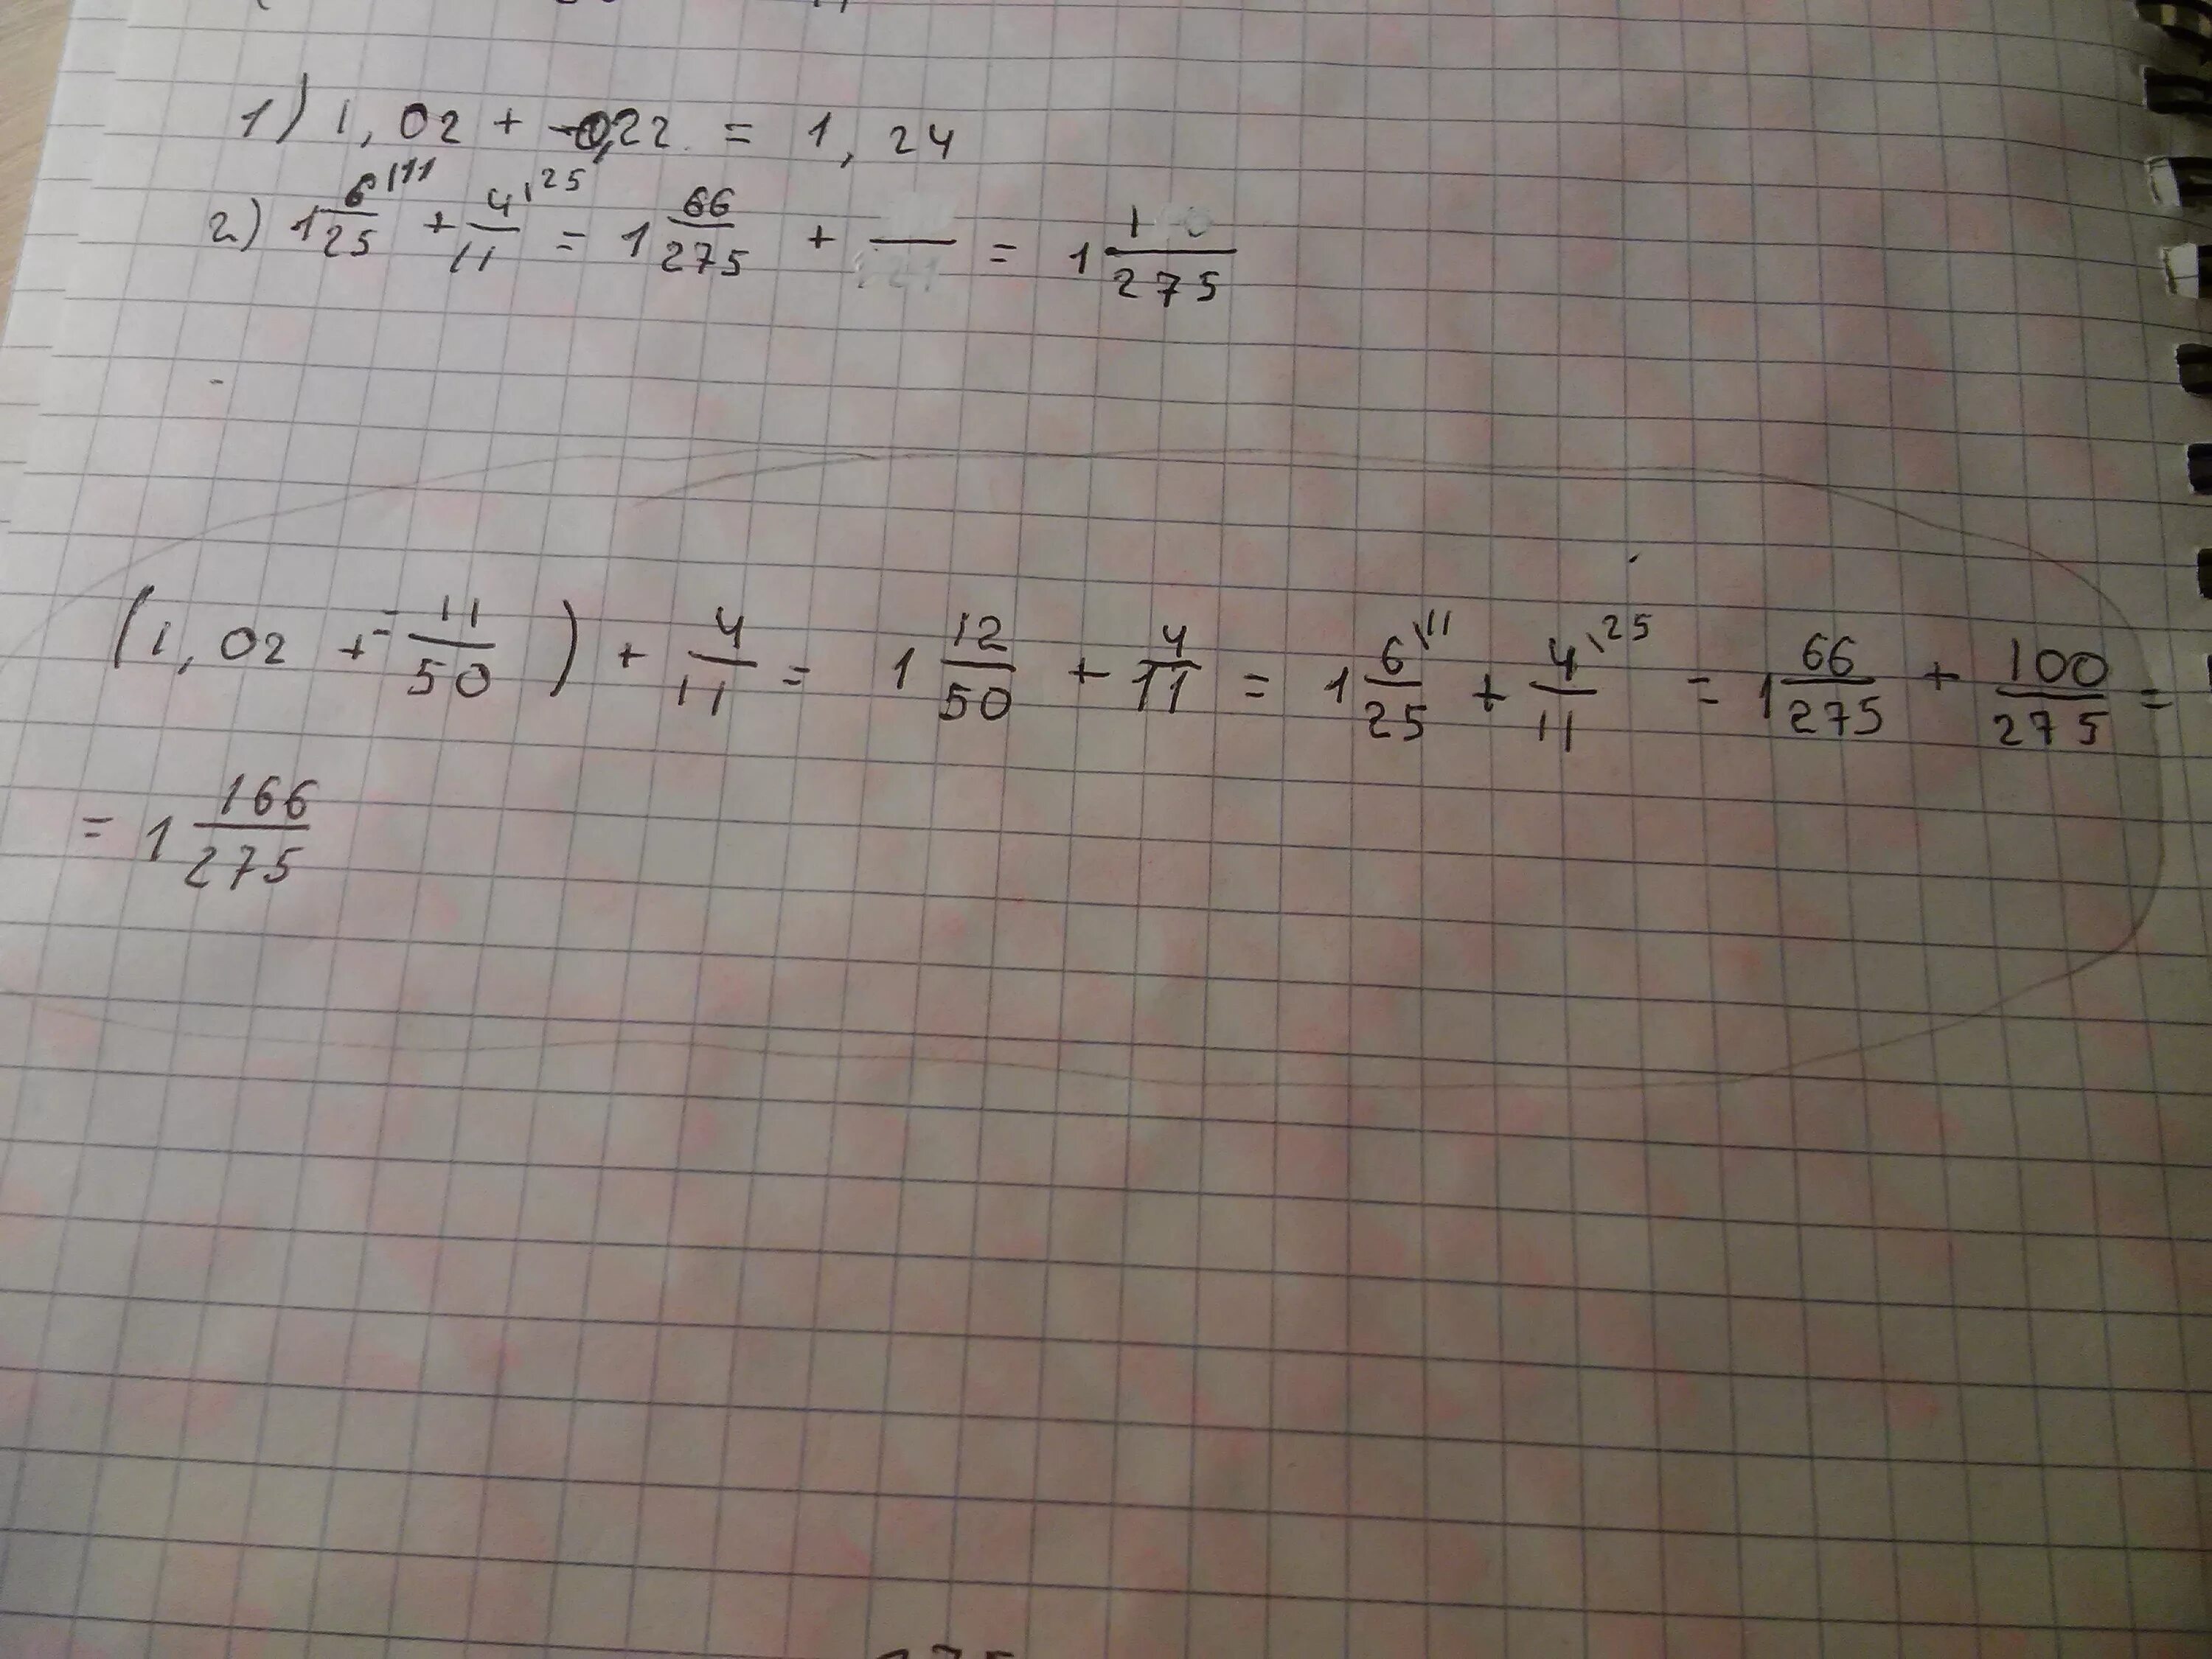 1) 1,02 + -0,22 = 1,24
2) 1 6/25 \11 + 4/11 \25 = 1 66/275 + — = 1 1/275
(1,02 + - 11/50) + 4/11 = 1 12/50 + 4/11 = 1 6/25 \11 + 4/11 \25 = 1 66/275 + 100/275 =
= 1 166/275